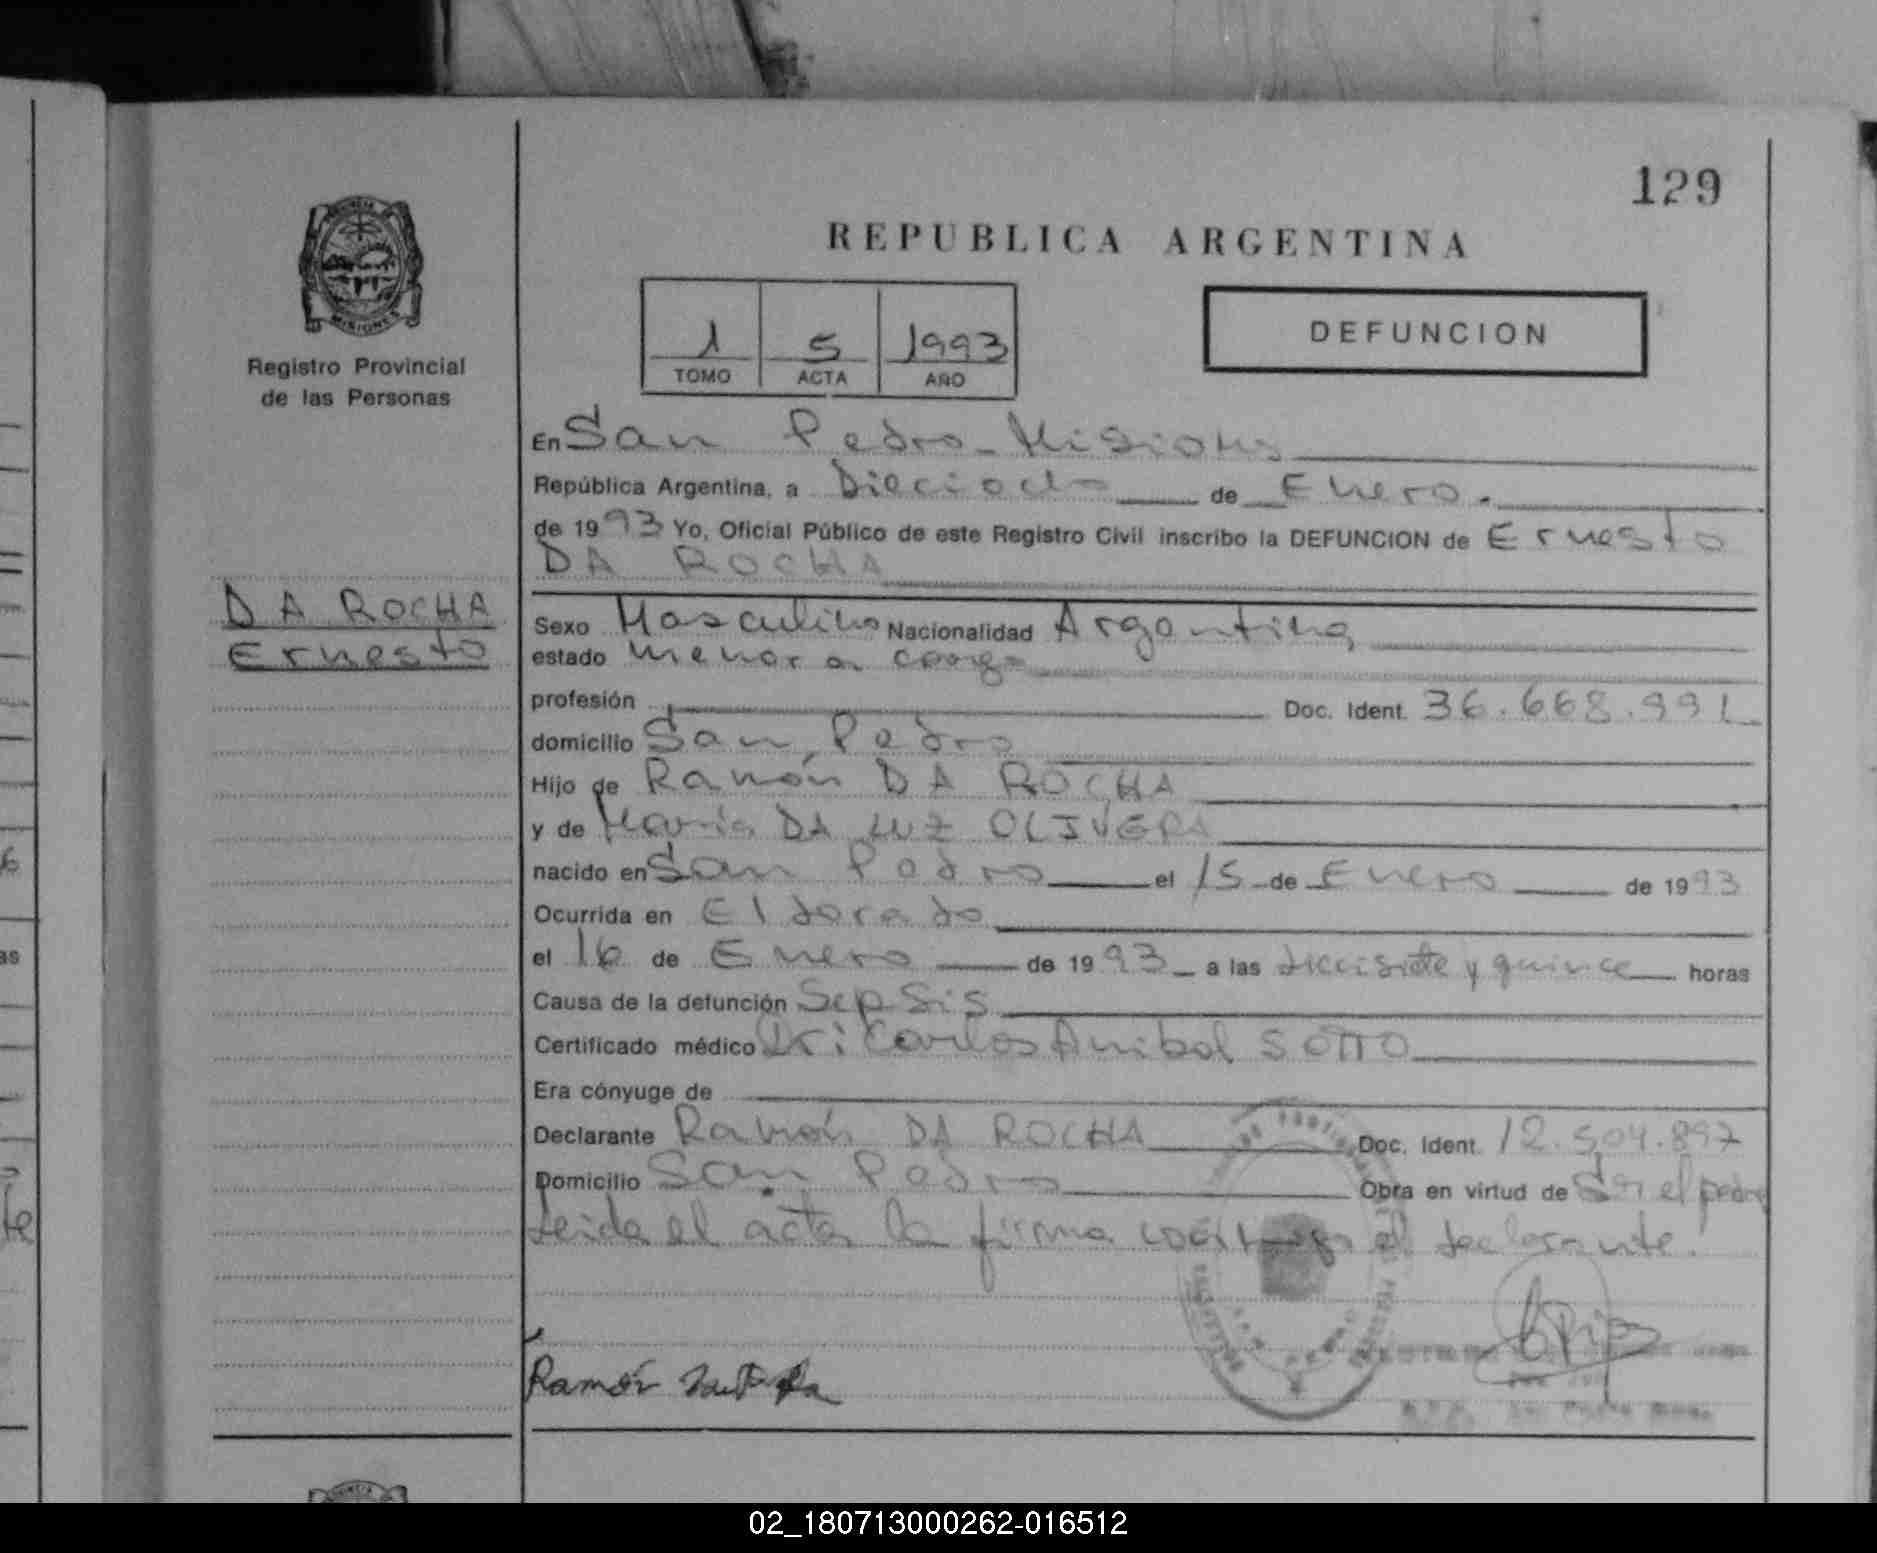 129
REPUBLICA ARGENTINA
PROVINCIA DE
MISIONES
Registro Provincial
de las Personas
1 5 1993
TOMO ACTA AÑO
DEFUNCION
En San Pedro - Misiones
República Argentina, a Dieciocho de Enero.
de 1993 Yo, Oficial Público de este Registro Civil inscribo la DEFUNCION de Ernesto
DA ROCHA
DA ROCHA
Ernesto
Sexo Masculino Nacionalidad Argentina
estado menor a cargo
profesión Doc. Ident. 36.668.991
domicilio San Pedro
Hijo de Ramón DA ROCHA
y de María DA LUZ OLIVERA
nacido en San Pedro el 15 de Enero de 1993
Ocurrida en Eldorado
el 16 de Enero de 1993 a las diecisiete y quince horas
Causa de la defunción Sepsis
Certificado médico Dr: Carlos Anibal SOTTO
Era cónyuge de
Declarante Ramón DA ROCHA Doc. Ident. 12.504.897
Domicilio San Pedro Obra en virtud de Ser el padre
Leida el acta la firma el declarante.
Ramón
02_180713000262-016512